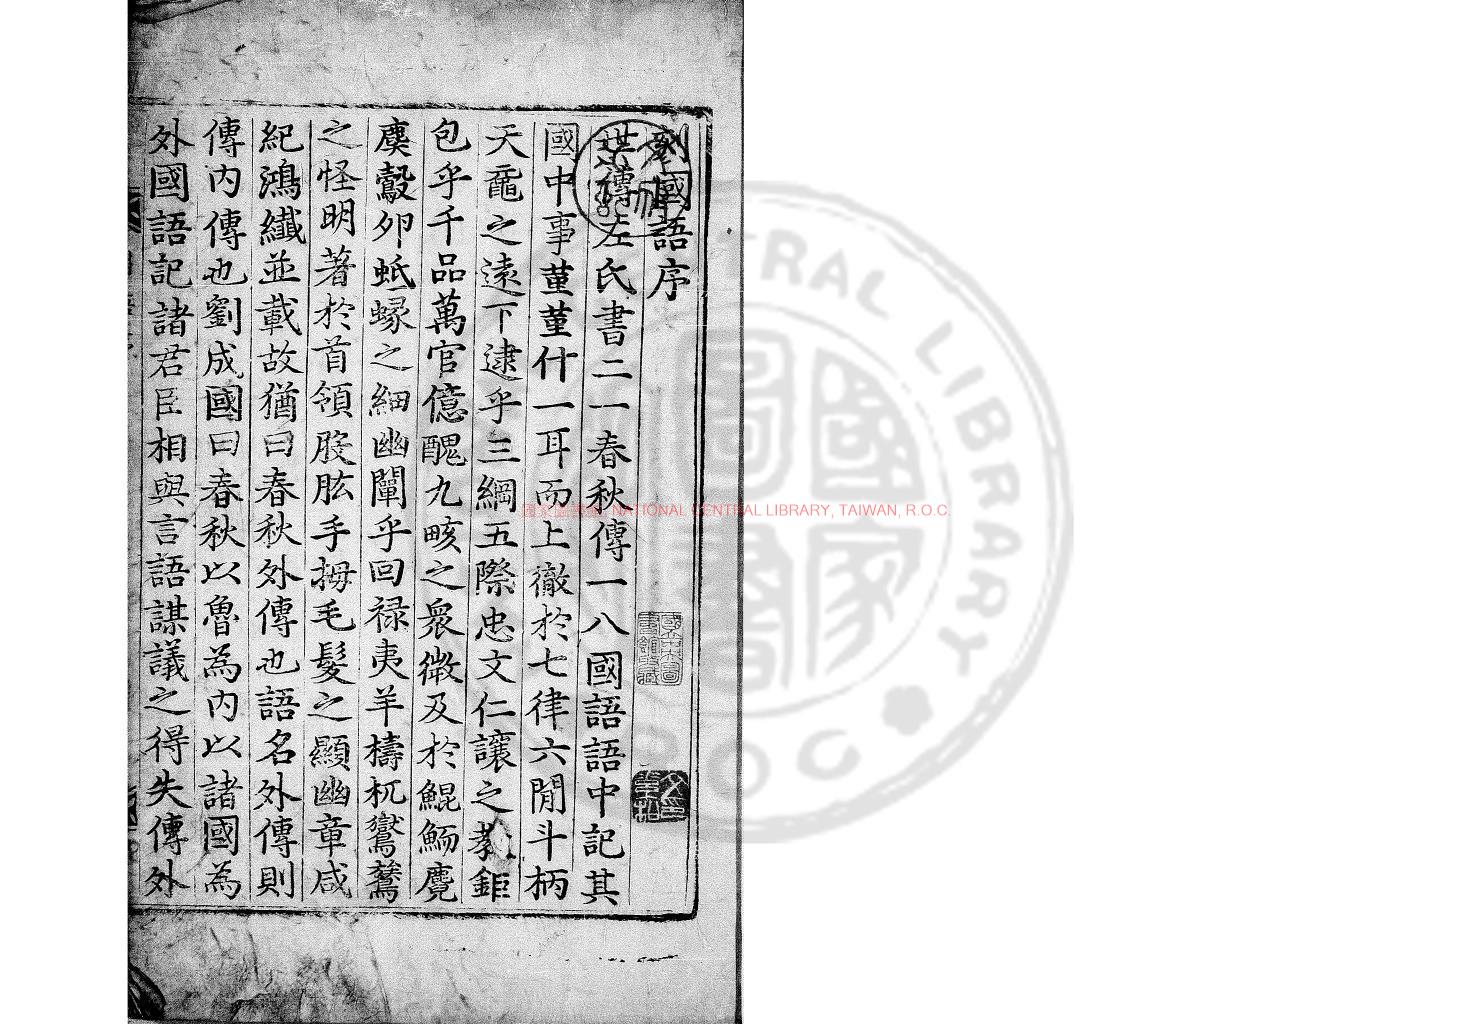 刻國語序
世傳左氏書二一春秋傳一八國語語中記其
國中事堇堇什一耳而上徹於七律六閒斗柄
天黿之遠下逮乎三綱五際忠文仁讓之教鉅
包乎千品萬官億醜九畡之衆微及於鯤鮞麑
麌鷇卵蚳蝝之細幽闡乎回禄夷羊檮杌鸑鷟
之怪明著於首領股肱手拇毛髮之顯幽章咸
紀鴻纖並載故猶曰春秋外傳也語名外傳則
傳内傳也劉成國曰春秋以魯為内以諸國為
外國語記諸君臣相與言語謀議之得失傳外
國家圖書館 NATIONAL CENTRAL LIBRARY, TAIWAN, R.O.C.
國立中央圖書館收藏